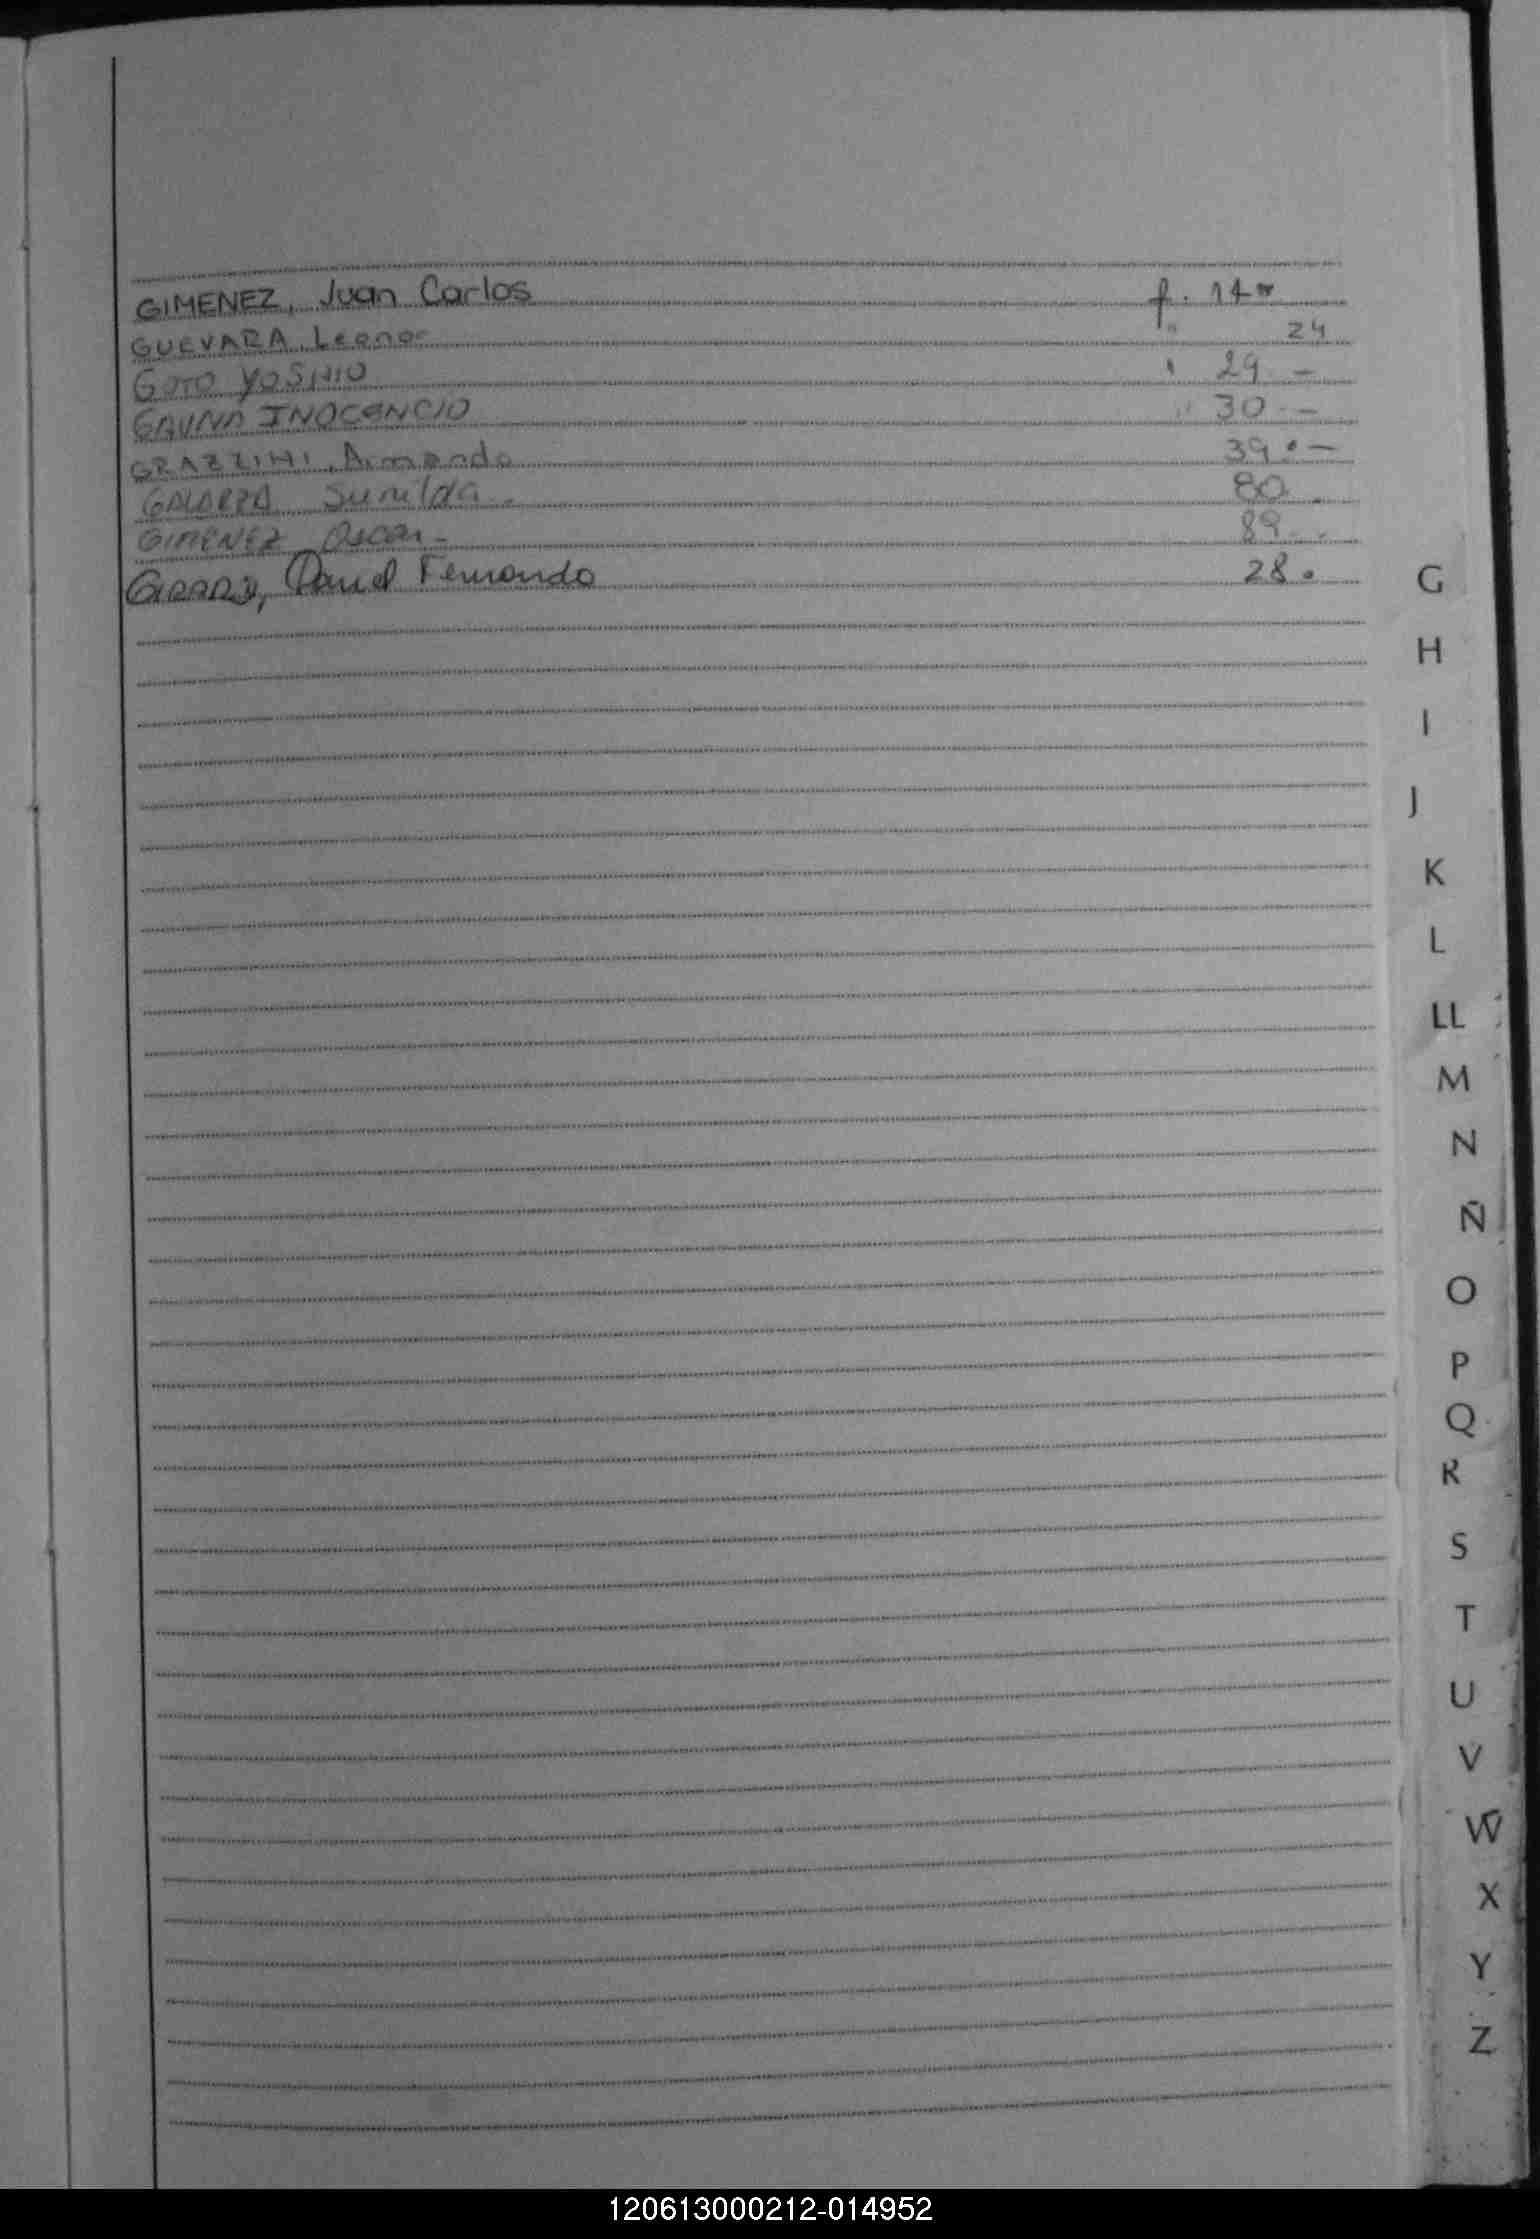 GIMENEZ, Juan Carlos f. 14
GUEVARA, Leonor " 24
GOTO YOSHIO " 29 —
GAUNA INOCENCIO " 30 —
GRAZZINI, Armando 39.—
GALARZA Sunilda. 80.
GIMENEZ Oscar - 89..
Daniel Fernando 28.
G
H
I
J
K
L
LL
M
N
Ñ
O
P
Q
R
S
T
U
V
W
X
Y
Z
120613000212-014952